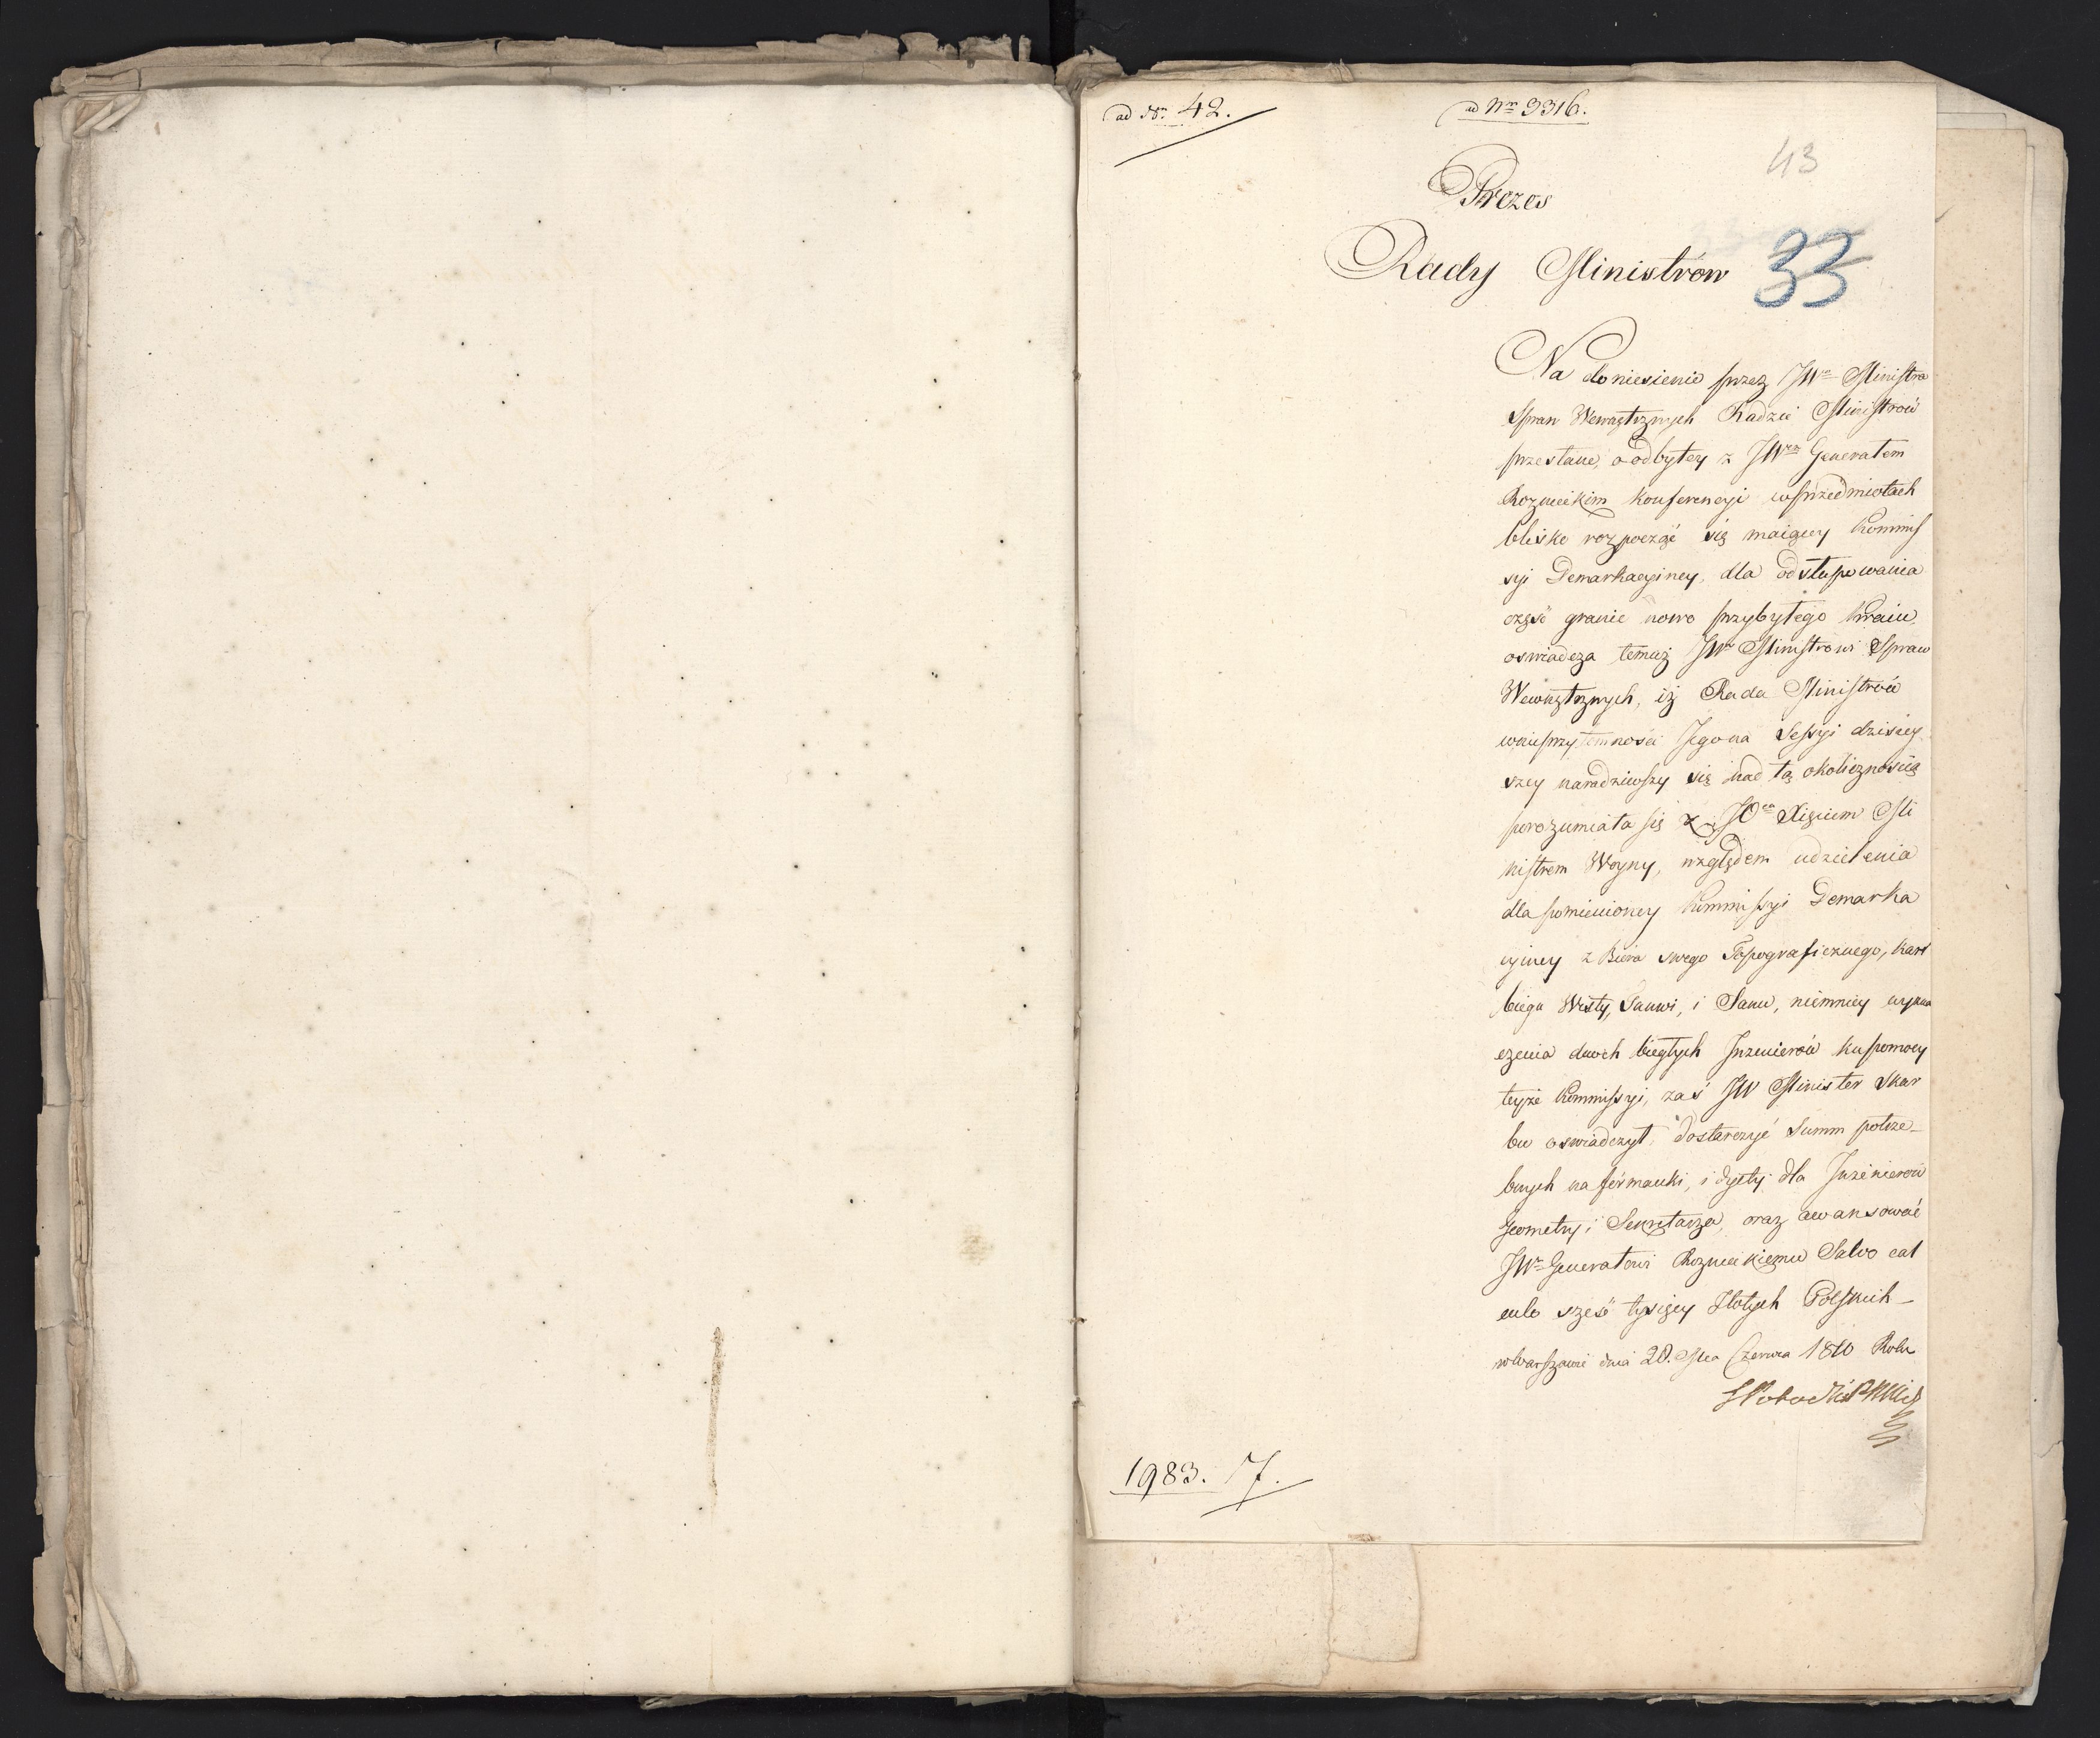 ad Nr. 42.
ad Nr 3316.
43
Prezes
33
Rady Ministrow
Na doniesienie przez JWo Ministra
Spraw Wewnętrznych Radzie Ministrów
przesłane, o odbytey z JWym Generałem
Roznieckim Konferencyi w przedmiotach
blisko rozpocząć się maiącey Kommis
syi Demarkacyiney, dla odstępowania
część granic nowo przybyłego Kraiu,
oswiadcza temuż JWu Ministrowi Spraw
Wewnętrznych, iż Rada Ministrów
w nieprzytomności Jego na Sessyi dzisiey
szey naradziwszy się nad tą okolicznością
porozumiała się z JOem Xięciem Mi
nistrem Woyny, względem udzielenia
dla pomienioney Kommissyi Demarka
cyiney z Biura swego Topograficznego, kart
biegu Wisły, Sanwi, i Sanu, niemniey wyzna
czenia dwoch biegłych Inzenierów ku pomocy
teyże Kommissyi, zaś JW Minister Skar
bu oswiadczył, dostarczyć Summ potrze-
bnych na förmanki, i dyety dla Inzenierów
Geometry, i Sekretarza, oraz awansować
JWu Generałowi Roznieckiemu Salvo cal
culo sześć tysięcy Złotych Polskich -
w Warszawie dnia 20. Mca Czerwca 1810 Roku
1983. 17.